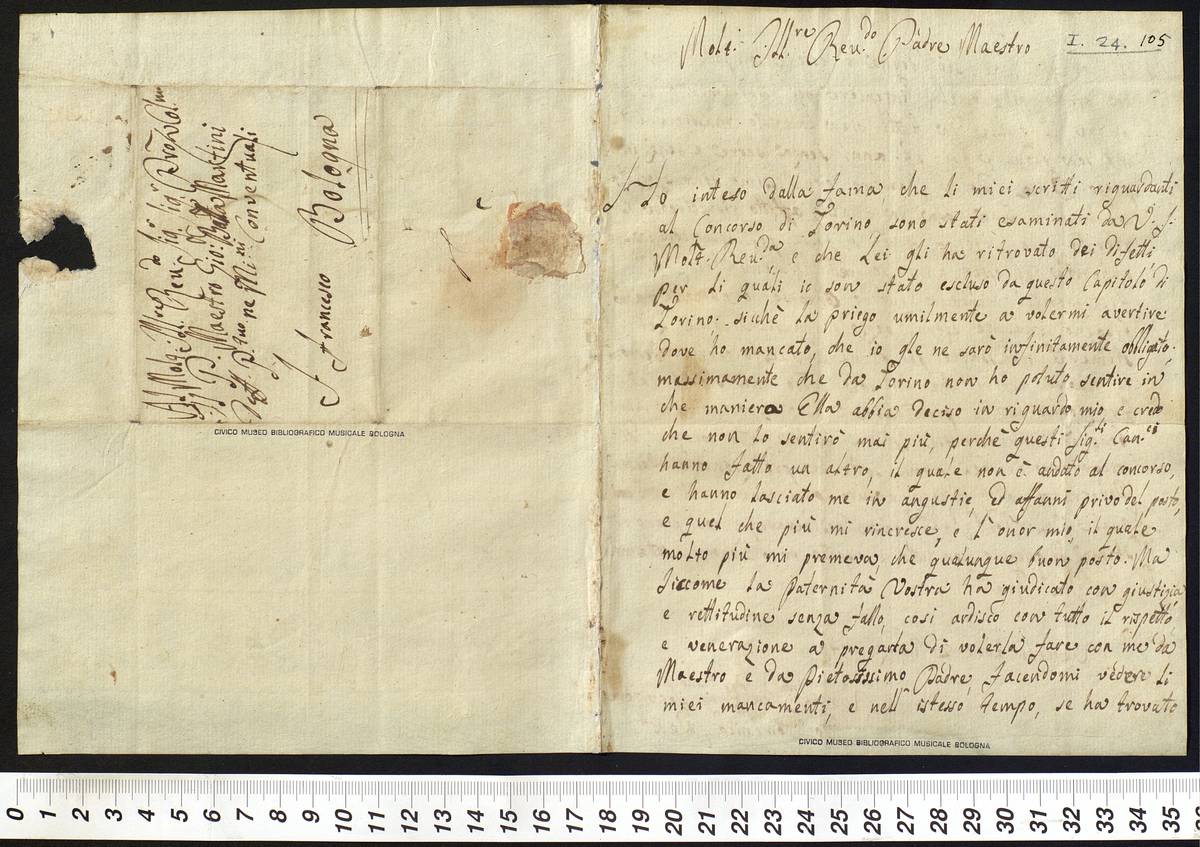 Al Molt: Ill.re Rev.do Sig.r Sig.r Pron Col.mo
Il P. Maestro Gio: Batta Martini
ne Mi.ri Conventuali
S. Francesco Bologna
CIVICO MUSEO BIBLIOGRAFICO MUSICALE BOLOGNA
Molt: Ill.re Reu.do Padre Maestro
I. 24. 105
Ho inteso dalla fama, che li miei scritti riguardanti
al Concorso di Torino, sono stati esaminati da V. S.
Molt. Reu.da, e che Lei gli ha ritrovato dei difetti
per li quali io son stato escluso da questo Capitolo di
Torino; sichè la priego umilmente a volermi avertire
dove ho mancato, che io gle ne sarò infinitamente obbligato,
massimamente che da Torino non ho potuto sentire in
che maniera Ella abbia deciso in riguardo mio e credo
che non lo sentirò mai più, perchè questi Sig.ri Can.ci
hanno fatto un altro, il quale non è andato al concorso,
e hanno lasciato me in angustie, ed affanni privo del posto,
e quel che più mi rincresce, e l'onor mio, il quale
molto più mi premeva, che qualunque buon posto. Ma
siccome la Paternità Vostra ha giudicato con giustizia
e rettitudine senza fallo, così ardisco con tutto il rispetto
e venerazione a pregarla di volerla fare con me da
Maestro e da Pietosissimo Padre, facendomi vedere li
miei mancamenti, e nell'istesso tempo, se ha trovato
CIVICO MUSEO BIBLIOGRAFICO MUSICALE BOLOGNA
0 1 2 3 4 5 6 7 8 9 10 11 12 13 14 15 16 17 18 19 20 21 22 23 24 25 26 27 28 29 30 31 32 33 34 35